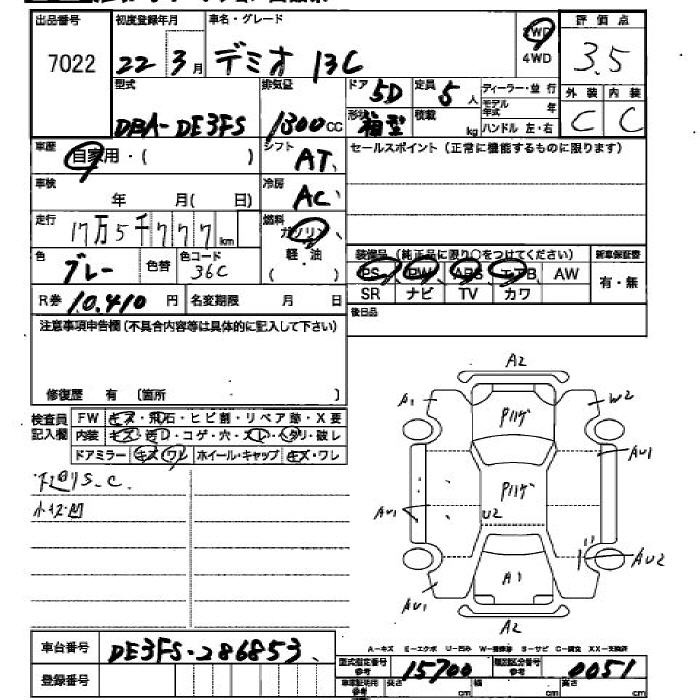 出品番号 初度登録年月 車名・グレード 評価点
7022 22 3月 デミオ 13C 2WD 4WD 3.5
型式 排気量 ドア 5D 定員 5人 ディーラー・並行 外装 内装
DBA-DE3FS 1300cc 形状 箱型 積載 kg モデル年式 年 ハンドル 左・右 C C
車歴 自家用・( ) シフト AT セールスポイント(正常に機能するものに限ります)
車検 年 月( 日) 冷房 AC
走行 17万5千777km 燃料 ガソリン
軽・油
( )
色 グレー 色替 色コード 36C 装備品(純正品に限り○をつけてください) 新車保証書
PS PW ABS エアB AW 有・無
R券 10.410円 名変期限 月 日 SR ナビ TV カワ
注意事項申告欄(不具合内容等は具体的に記入して下さい) 後日品
修復歴 有 〔箇所 〕
検査員記入欄 FW キズ・飛石・ヒビ割・リペア跡・X要
内装 キズ・コゲ・穴・スレ・破レ
ドアミラー キズ ワレ ホイール・キャップ キズ・ワレ
S.C.
小キズ凹
A2
A1 W2
Pハゲ
AU1
Pハゲ
AU1 U2
AU2
A1
AU1
A2
A-キズ E-エクボ U-凹み W-補修跡 S-サビ C-腐食 XX-交換済
車台番号 DE3FS-286853 型式指定番号 参考 15700 類別区分番号 参考 0051
登録番号 長さ cm 幅 cm 高さ cm